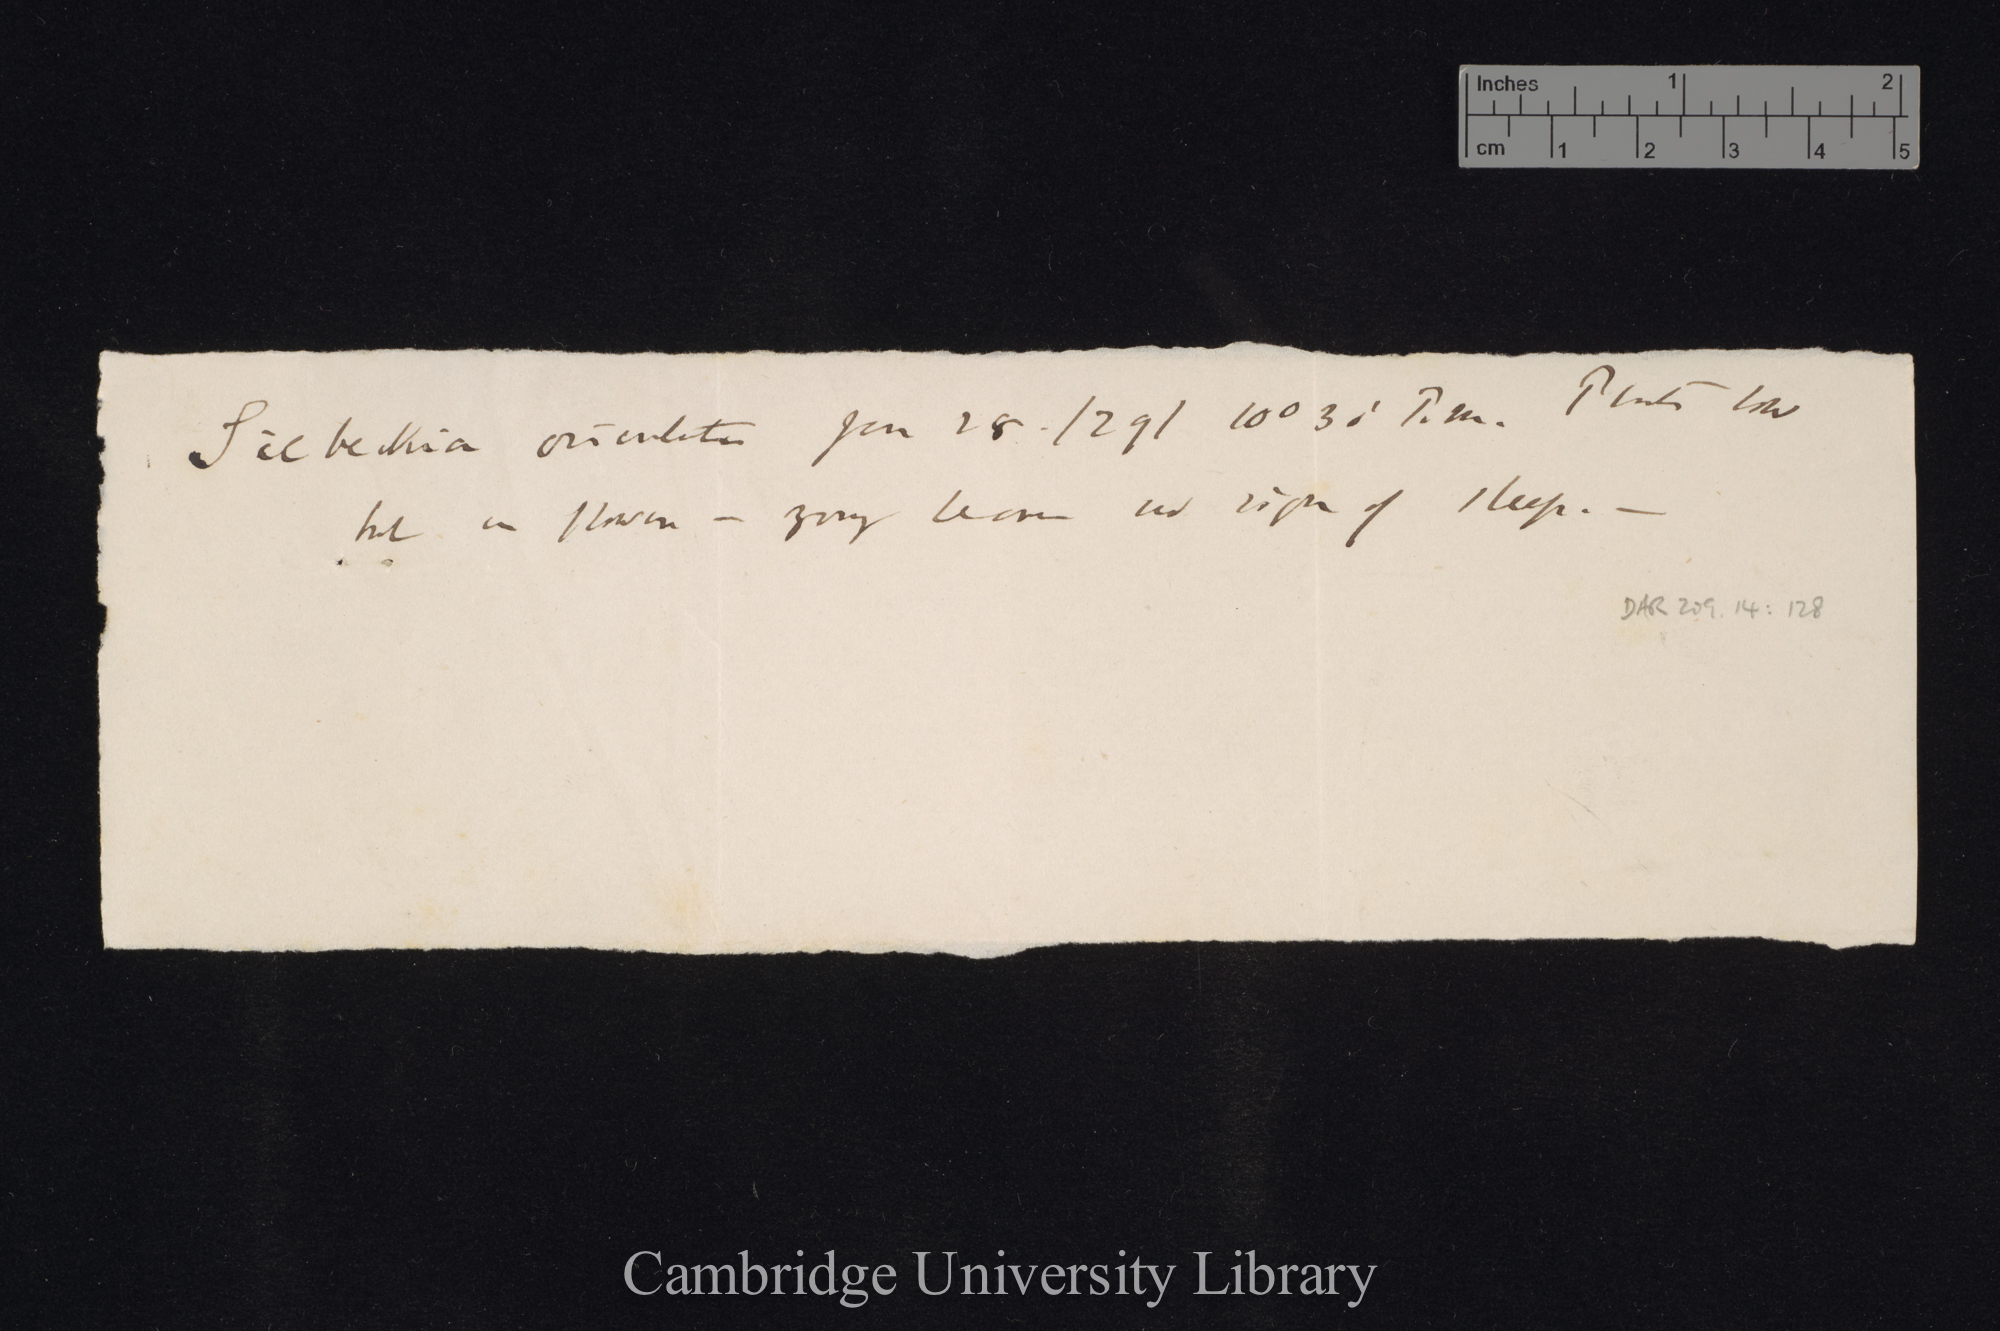 Inches 1 2
cm 1 2 3 4 5
Siegesbeckia orientalis Jan 28 /29/ 10° 30' P.m. Plants low
but in flower — young leaves no sign of sleep. —
DAR 209.14: 128
Cambridge University Library